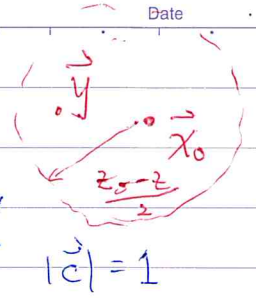 Date
y⃗
x⃗₀
z₀-z
2
|c⃗| = 1